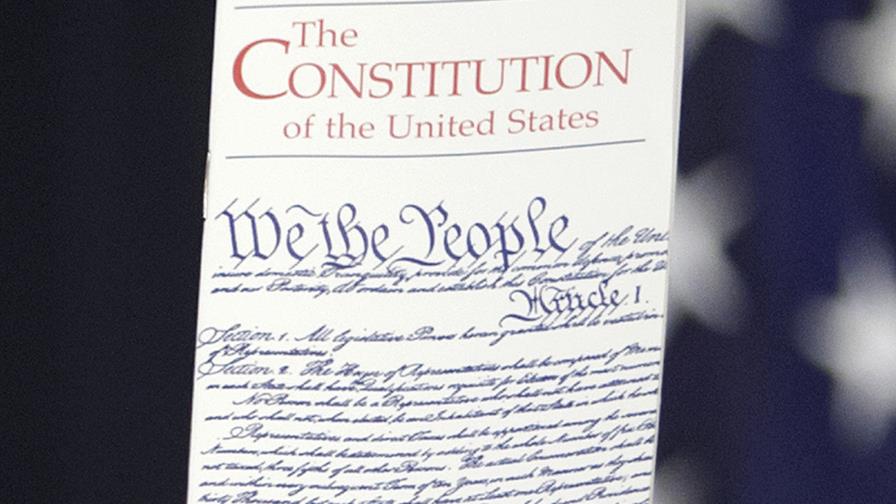 The
CONSTITUTION
of the United States
We the People of the Uni
insure domestic Tranquility, provide for the common defence, promo
and our Posterity, do ordain and establish this Constitution for the U
Article I.
Section. 1. All legislative Powers herein granted shall be vested in
of Representatives.
Section. 2. The House of Representatives shall be composed of Mem
in each State shall have Qualifications requisite for Electors of the most numerou
No Person shall be a Representative who shall not have attained t
and who shall not, when elected, be an Inhabitant of that State in which he
Representatives and direct Taxes shall be apportioned among the
Numbers, which shall be determined by adding to the whole Number of free
not taxed, three fifths of all other Persons. The actual Enumeration shall be
and within every subsequent Term of ten Years, in such Manner as they
thirty Thousand, but each State shall have at Least one Representative;